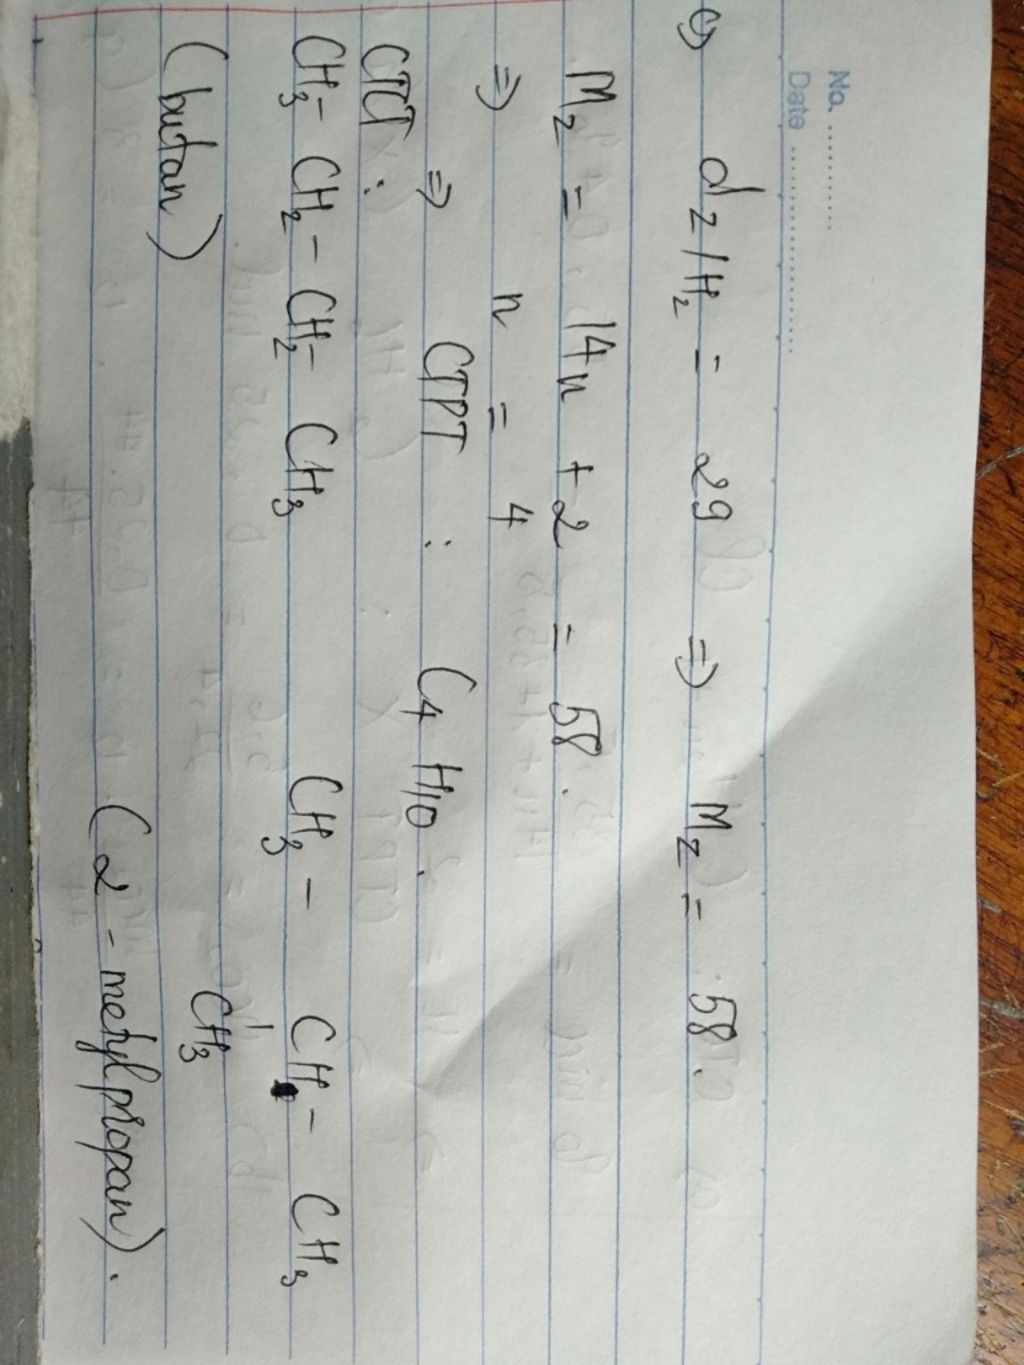 No. ............
Date ........................
c) dZ/H2 = 29 => MZ = 58.
MZ = 14n + 2 = 58.
=> n = 4
=> CTPT : C4H10.
CTCT :
CH3 - CH2 - CH2 - CH3 CH3 - CH - CH3
CH3
(butan)
(2 - metylpropan).